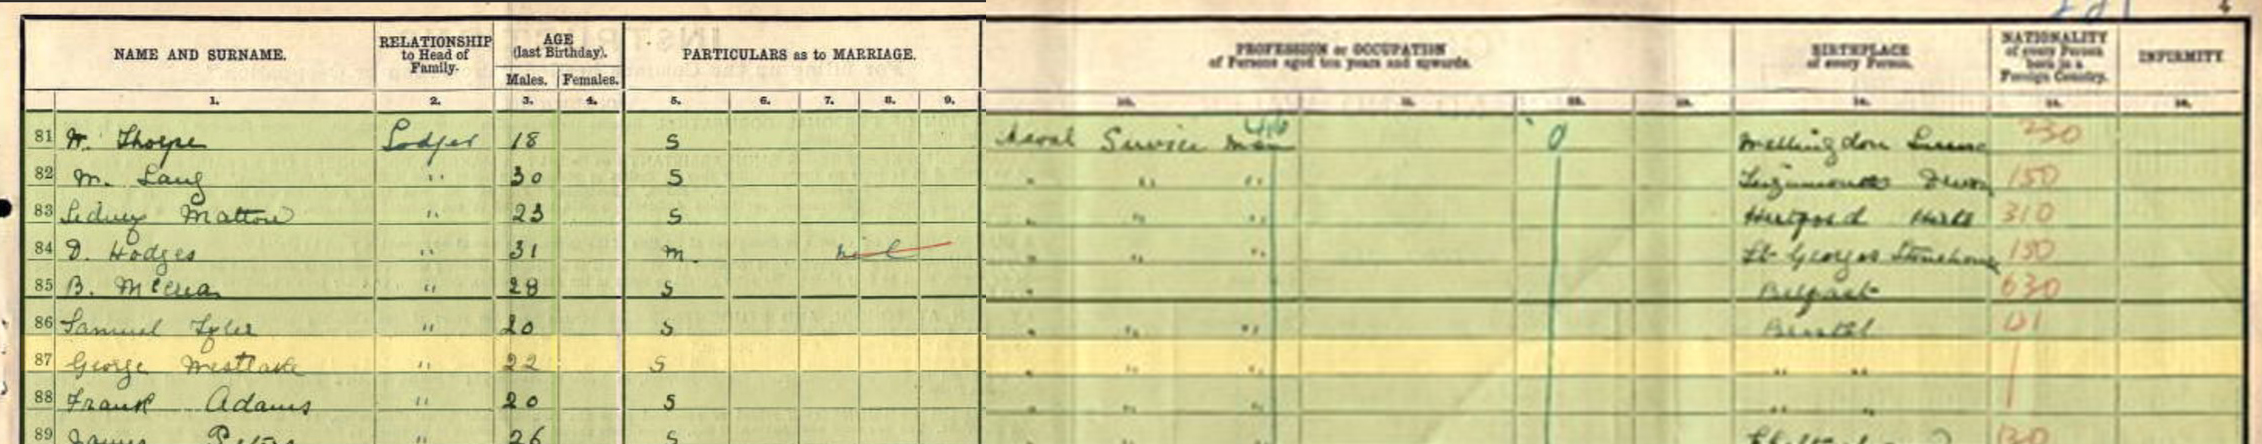 NAME AND SURNAME. RELATIONSHIP to Head of Family. AGE (last Birthday). Males. Females. PARTICULARS as to MARRIAGE. PROFESSION or OCCUPATION of Persons aged ten years and upwards. BIRTHPLACE of every Person. NATIONALITY of every Person born in a Foreign Country. INFIRMITY
1. 2. 3. 4. 5. 6. 7. 8. 9. 10. 11. 12. 13. 14. 15. 16.
81 W. Thorpe Lodger 18 S Naval Service Man 0 230
82 M. Lang " 30 S " " " Devon 150
83 Sidney " 23 S " " " Hertford Herts 310
84 D. Hodges " 31 M. nil " " " St Georges Stonehouse 150
85 B. McCrea " 28 S " Belfast 630
86 Samuel Tyler " 20 S " " " Bristol 121
87 George Westlake " 22 S " " " " "
88 Frank Adams " 20 S " " " " "
89 James Peters " 26 S